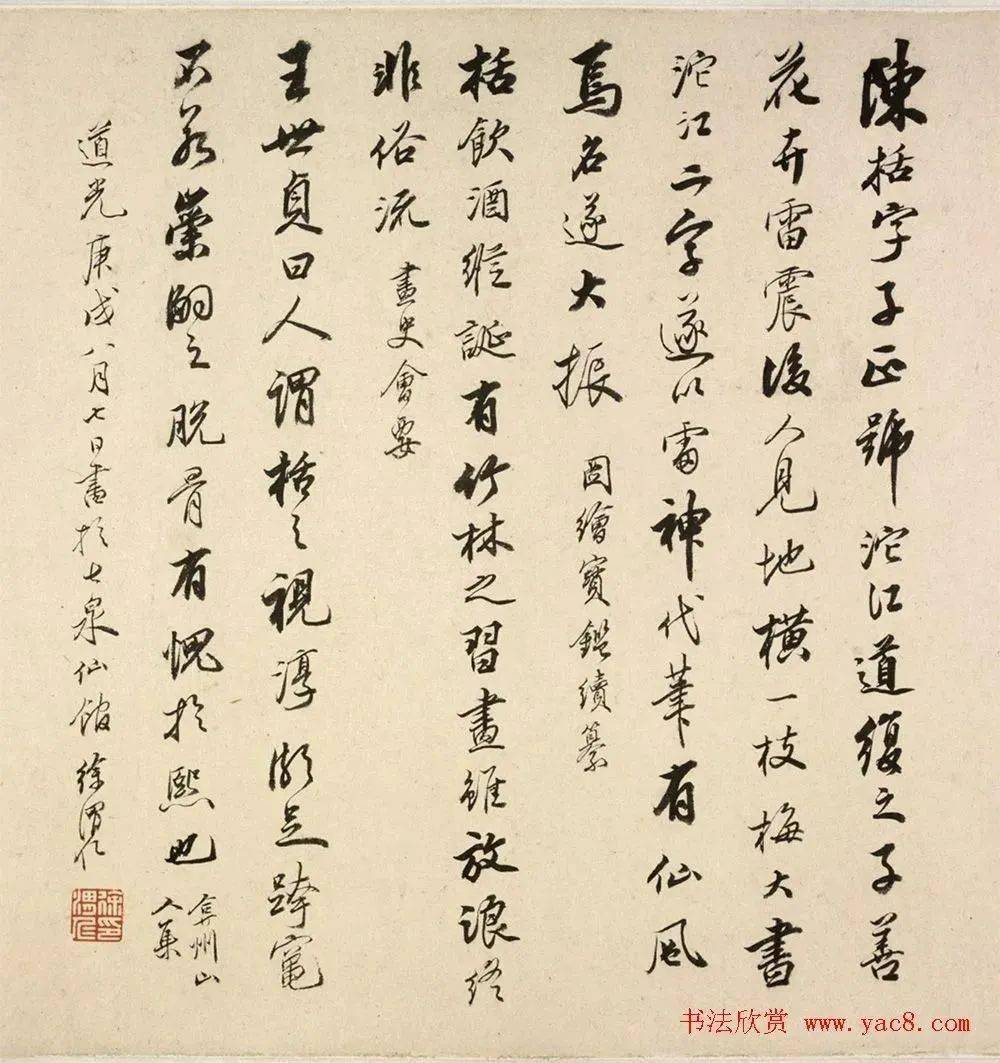 陳栝字子正號沱江道復之子善
花卉雷震後人見地橫一枝梅大書
沱江二字遂以雷神代筆有仙風
焉名遂大振 圖繪寶鑑續纂
栝飲酒縱誕有竹林之習畫雖放浪終
非俗流 畫史會要
王世貞曰人謂栝之視淳頗足跨竈
不若崇嗣之脫骨有愧於熙也 弇州山
人集
道光庚戌八月七日書於七泉仙館 徐渭仁
徐印渭仁
书法欣赏 www.yac8.com